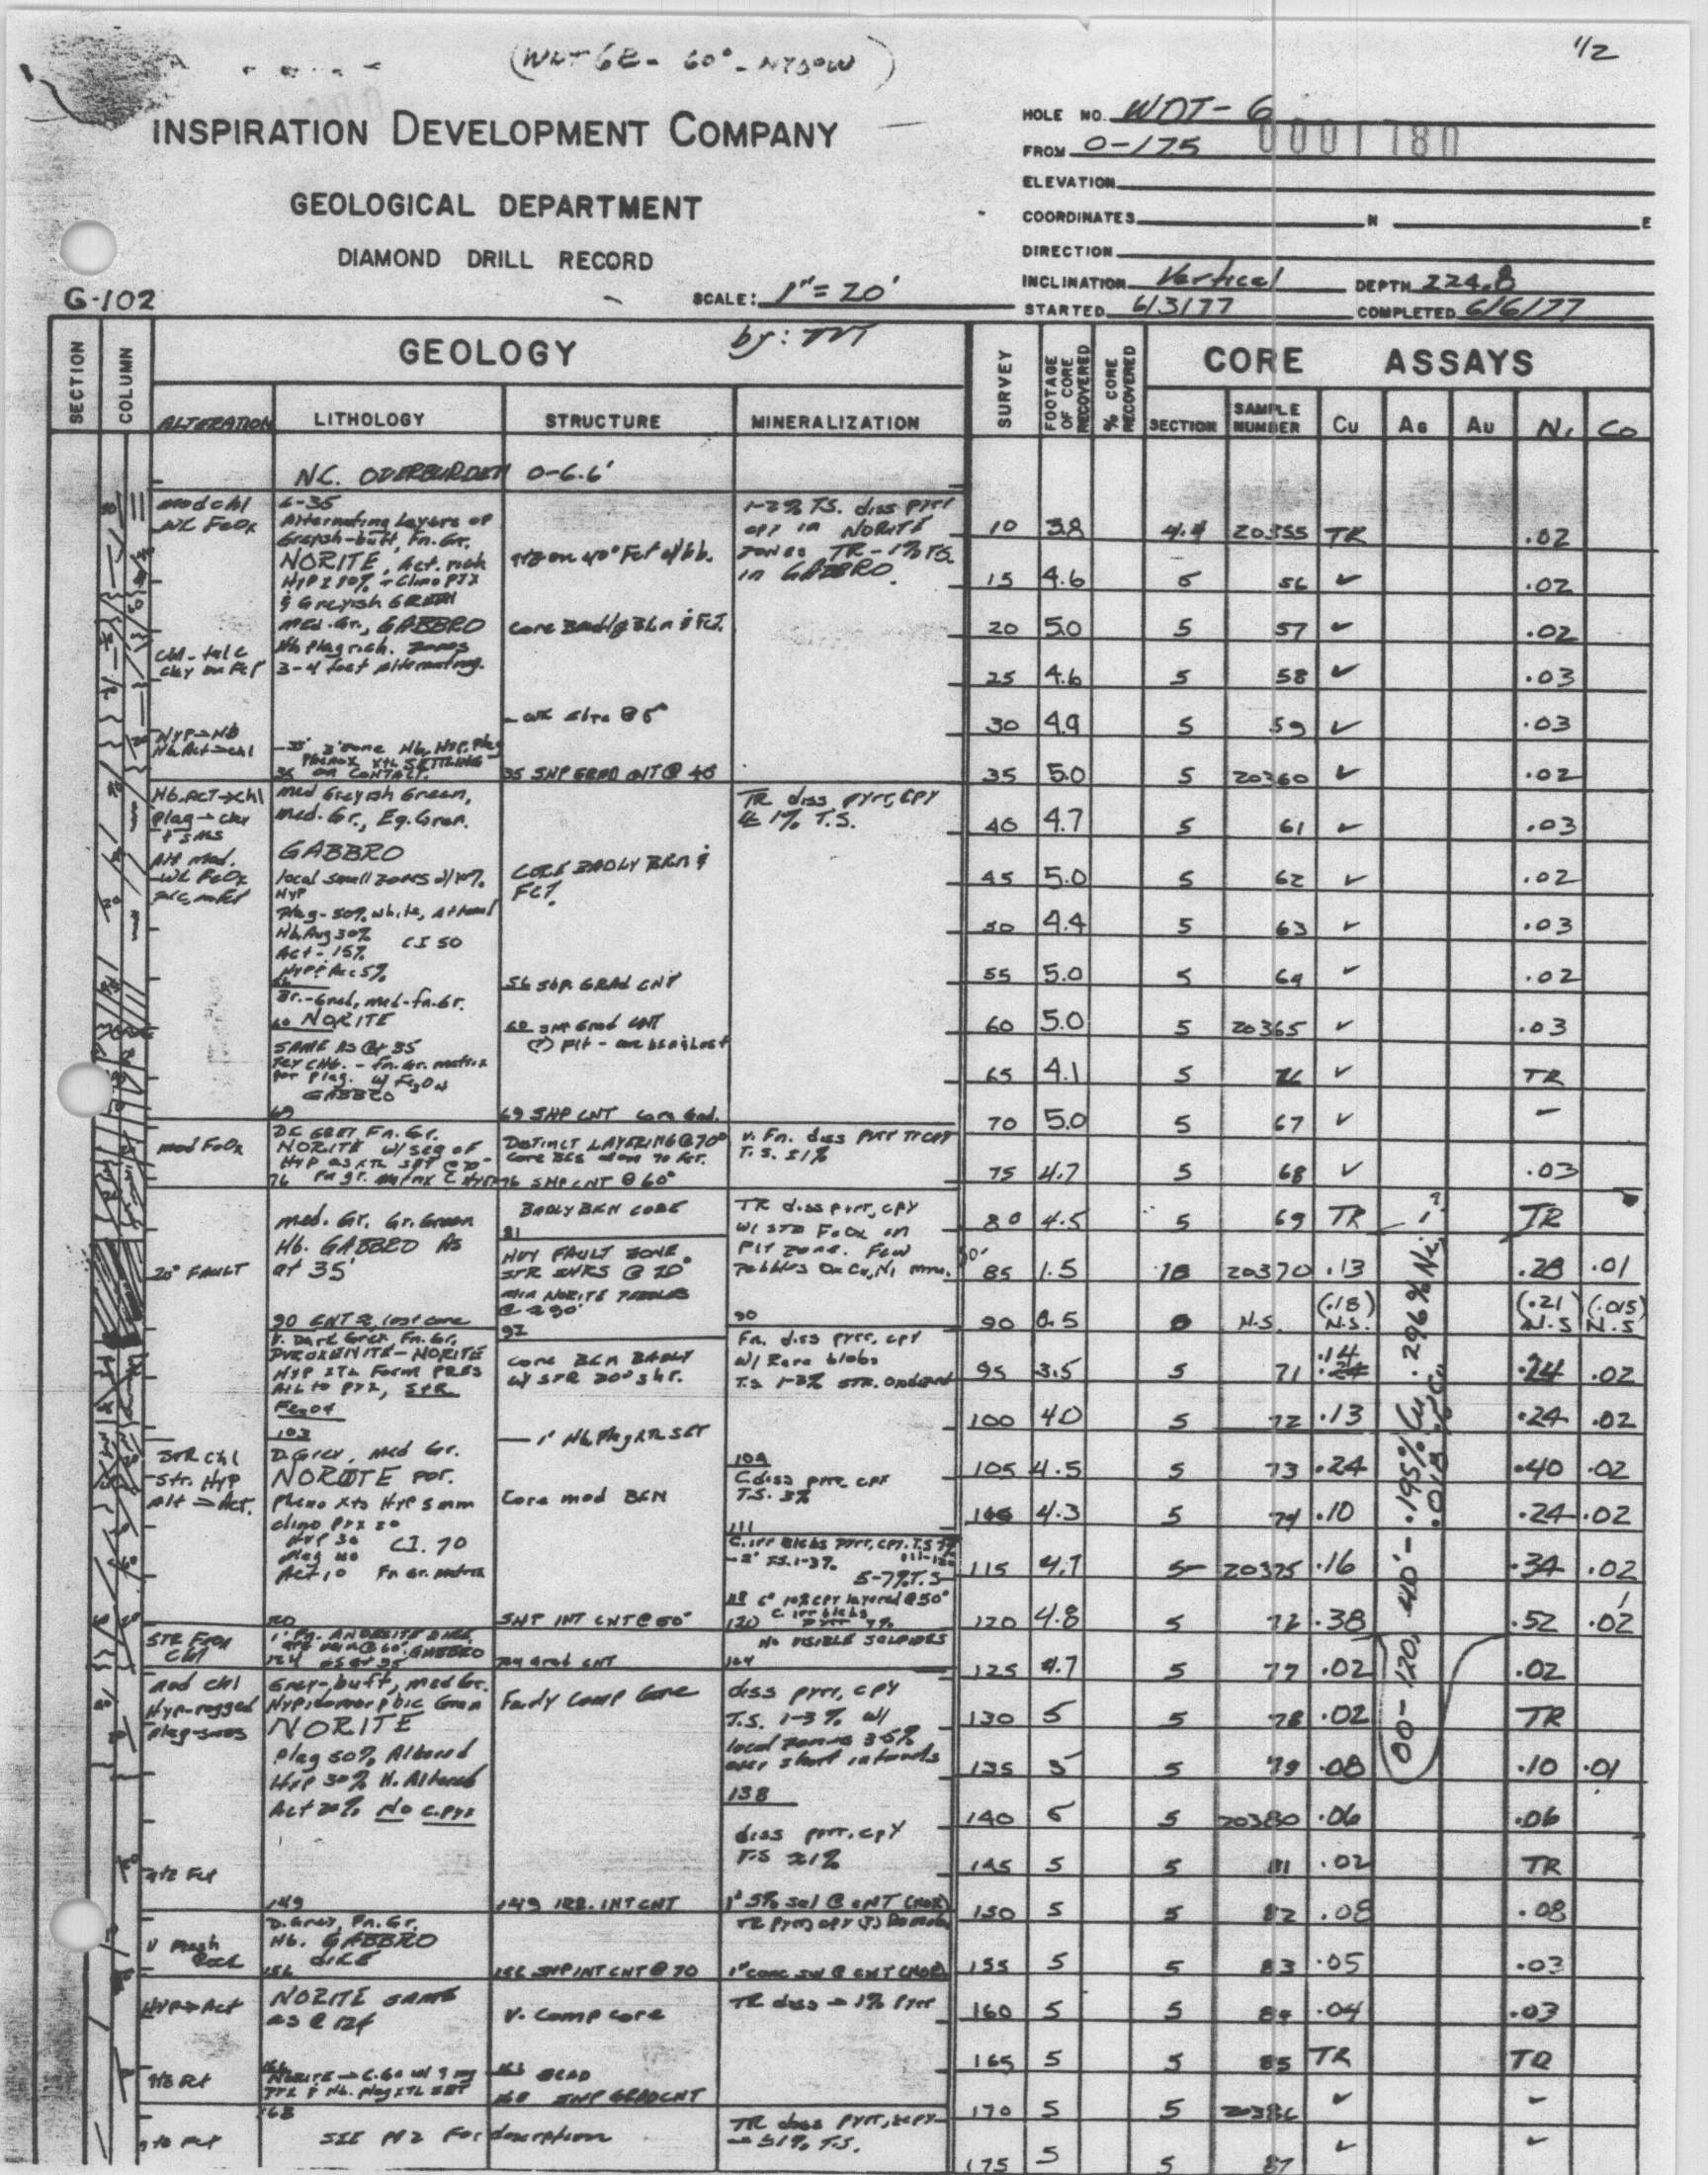 1/2
(WDT 6E - 60° - N730W)
INSPIRATION DEVELOPMENT COMPANY
GEOLOGICAL DEPARTMENT
DIAMOND DRILL RECORD
G-102
SCALE: 1" = 20'
HOLE NO. WDT-6
0001780
FROM 0-175
ELEVATION
COORDINATES N E
DIRECTION
INCLINATION Vertical DEPTH 224.8
STARTED 6/3/77 COMPLETED 6/6/77
by: TVT
SECTION COLUMN GEOLOGY SURVEY FOOTAGE OF CORE RECOVERED % CORE RECOVERED CORE ASSAYS
ALTERATION LITHOLOGY STRUCTURE MINERALIZATION SECTION SAMPLE NUMBER Cu AG AU Ni Co
N.C. OVERBURDEN 0-6.6'
mod chl
WK FeOx
6-35
Alternating Layers of
Greysh-buff, Fn. Gr.
NORITE, Act. rich
& Greyish GREEN
med. Gr., GABBRO
Hb Plag rich. Zones
3-4 feet alternating.
chl-talc
clay on Fct
Core Badly Bkn & Fct.
1-2% T.S. diss pyrr
cpy in NORITE
zones TR-1% TS.
in GABBRO
Hyp→Hb
Hb. Act→chl
on CONTACT.
35 SHP GRAD CNT @ 40
Hb. ACT→chl
plag→clay
Alt mod.
WK FeOx
med Greyish Green,
med. Gr., Eq. Gran.
GABBRO
local small zones w/10%
HYP
Plag-50% white, altered
Hb, Aug 30%
Act-15% CI 50
Hyp + Acc 5%
CORE BADLY BKN &
FCT.
TR diss pyrr, cpy
≤ 1% T.S.
56
Br.-Gred, med-fn. Gr.
60 NORITE
SAME AS @ 35
GABBRO
69
56 SHP. GRAD CNT
69 SHP CNT
mod FeOx
DK GREY Fn. Gr.
NORITE w/ seg of
DISTINCT LAYERING @ 70°
76 SHP CNT @ 60°
V. Fn. diss pyrr TR cpy
T.S. ≤1%
20° FAULT
med. Gr. Gr. Green
Hb. GABBRO As
at 35'
90 CNT ?, lost core
BADLY BKN CORE
81
HVY FAULT ZONE
STR SHRS @ 20°
92
TR diss pyrr, cpy
w/ STR FeOx on
Flt zone. Few
pebbles Ox Cu, Ni mnn.
90
V. Dark Grey, Fn. Gr.
PYROXENITE-NORITE
HYP XTL Form PRES
Alt to PYX, STR
Fe3O4
103
core BKN BADLY
w/ STR 20° shr.
Fn. diss pyrr, cpy
w/ Rare blebs
T.S. 1-3% STR. Oxidized
STR chl
Str. HYP
Alt→Act.
D. Grey, med Gr.
NORITE POR.
Pheno xts Hyp 5mm
clino pyx 20
Hyp 30 CI. 70
plag 40
Act 10 Fn Gr. matrix
120
1' Hb, Plag XTL SET
Core mod BKN
SHP INT CNT @ 60°
109
C diss pyrr cpy
T.S. 3%
111
5-7% T.S.
NO VISIBLE SULPHIDES
STR FeOx
Chl
124 GRAD CNT
mod chl
Hyp-ragged
plag-saus
Grey-buff, med Gr.
Hypidiomorphic Gran
NORITE
plag 50% Altered
Hyp 30% H. Altered
Act 20% No C.pyx
149
Fairly Comp Core
149 IRR. INT CNT
diss pyrr, cpy
T.S. 1-3% w/
local zones 3-5%
over short intervals
138
diss pyrr. cpy
T.S ≈1%
1" 5% sul @ CNT (NOR)
V Fresh
Rock
D. Grey, Fn. Gr.
Hb. GABBRO
dike
156
156 SHP INT CNT @ 70
1" conc sul @ CNT (NOR)
HYP→Act
NORITE same
as @ 124
V. Comp core
TR diss → 1% pyrr
GRAD
168 SHP GRAD CNT
168
SEE P# 2 For description
TR diss pyrr, cpy
→ ≤1% T.S.
10 3.8 4.4 20355 TR .02
15 4.6 5 56 ✓ .02
20 5.0 5 57 ✓ .02
25 4.6 5 58 ✓ .03
30 4.9 5 59 ✓ .03
35 5.0 5 20360 ✓ .02
40 4.7 5 61 ✓ .03
45 5.0 5 62 ✓ .02
50 4.4 5 63 ✓ .03
55 5.0 5 64 ✓ .02
60 5.0 5 20365 ✓ .03
65 4.1 5 66 ✓ TR
70 5.0 5 67 ✓ -
75 4.7 5 68 ✓ .03
80 4.5 5 69 TR TR
85 1.5 10 20370 .13 .28 .01
(.18) (.21) (.015)
90 0.5 0 N.S. N.S. N.S N.S
.14
95 3.5 5 71 .24 .02
100 4.0 5 72 .13 .24 .02
105 4.5 5 73 .24 .40 .02
4.3 5 74 .10 .24 .02
115 4.7 5 20375 .16 .34 .02
120 4.8 5 76 .38 .52 .02
125 4.7 5 77 .02 .02
130 5 5 78 .02 TR
135 5 5 79 .08 .10 .01
140 5 5 20380 .06 .06
145 5 5 81 .02 TR
150 5 5 82 .08 .08
155 5 5 83 .05 .03
160 5 5 84 .04 .03
165 5 5 85 TR TR
170 5 5 20386 ✓ -
175 5 5 87 ✓ ✓
80-120, 40' - .195% Cu, .296% Ni,
.018% Co